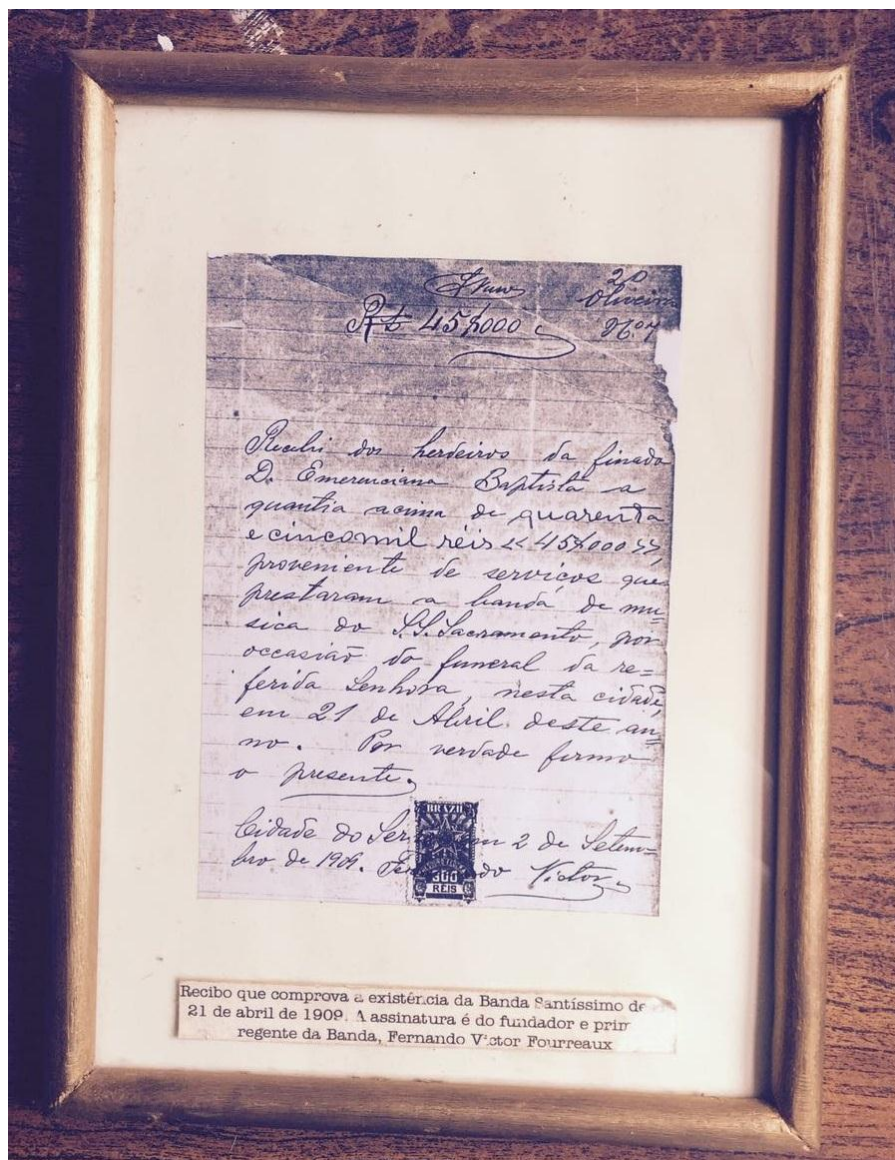 20
Oliveira
N.o 7
Rs 45$000
Recebi dos herdeiros da finada
D. Emerenciana Baptista a
quantia acima de quarenta
e cincomil réis << 45$000 >>,
proveniente de serviços que
prestaram a banda de mu=
sica do S.S. Sacramento, por
occasião do funeral da re=
ferida Senhora, nesta cidade,
em 21 de Abril deste an=
no. Por verdade firmo
o presente.
Cidade do Ser em 2 de Setem=
bro de 1909. Fer do Victor
BRAZIL
300
RÉIS
Recibo que comprova a existência da Banda Santíssimo de
21 de abril de 1909. A assinatura é do fundador e prim
regente da Banda, Fernando Victor Fourreaux